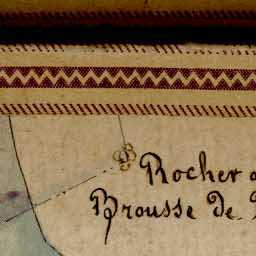 Rocher
Brousse de